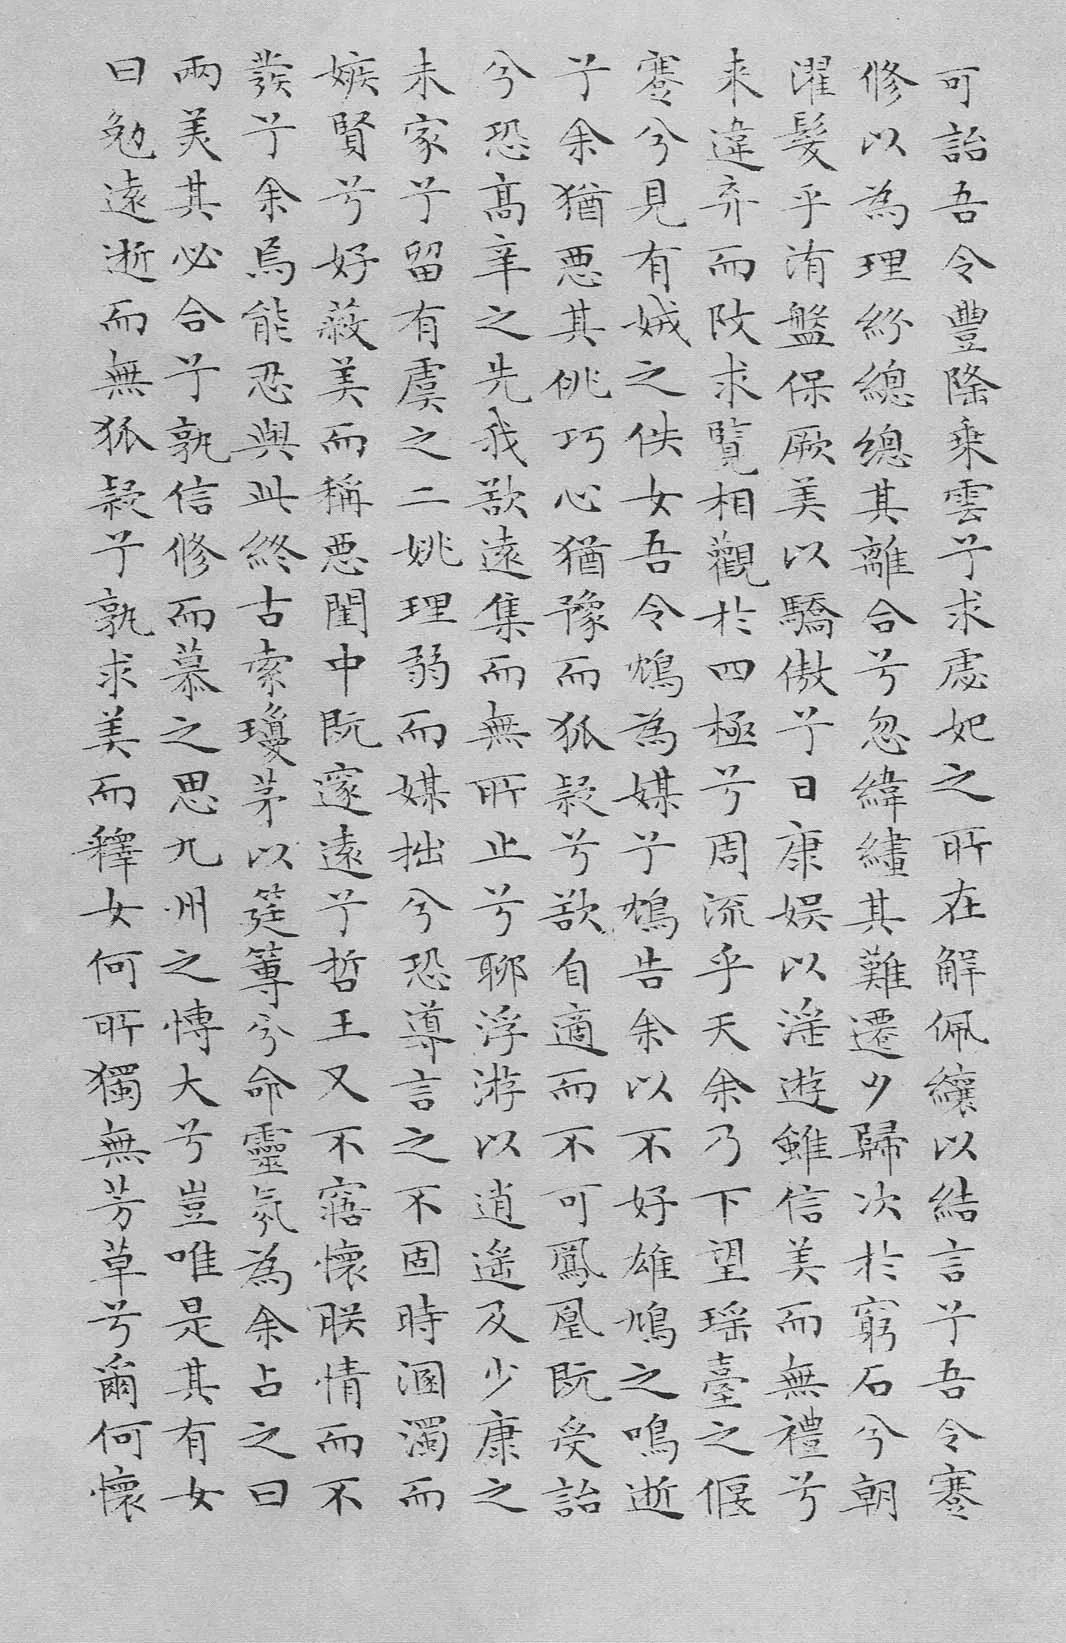 可詒吾令豐隆乘雲兮求虙妃之所在解佩纕以結言兮吾令蹇
修以為理紛總總其離合兮忽緯繣其難遷夕歸次於窮石兮朝
濯髮乎洧盤保厥美以驕傲兮日康娛以淫遊雖信美而無禮兮
来違弃而改求覽相觀於四極兮周流乎天余乃下望瑶臺之偃
蹇兮見有娀之佚女吾令鴆為媒兮鴆告余以不好雄鳩之鳴逝
兮余猶悪其佻巧心猶豫而狐疑兮欲自適而不可鳳凰既受詒
兮恐髙辛之先我欲遠集而無所止兮聊浮游以逍遥及少康之
未家兮留有虞之二姚理弱而媒拙兮恐導言之不固時溷濁而
嫉賢兮好蔽美而稱悪閨中既邃遠兮哲王又不寤懷朕情而不
發兮余焉能忍與此終古索瓊茅以筳篿兮命靈氛為余占之曰
兩美其必合兮孰信修而慕之思九州之博大兮豈唯是其有女
曰勉遠逝而無狐疑兮孰求美而釋女何所獨無芳草兮爾何懷